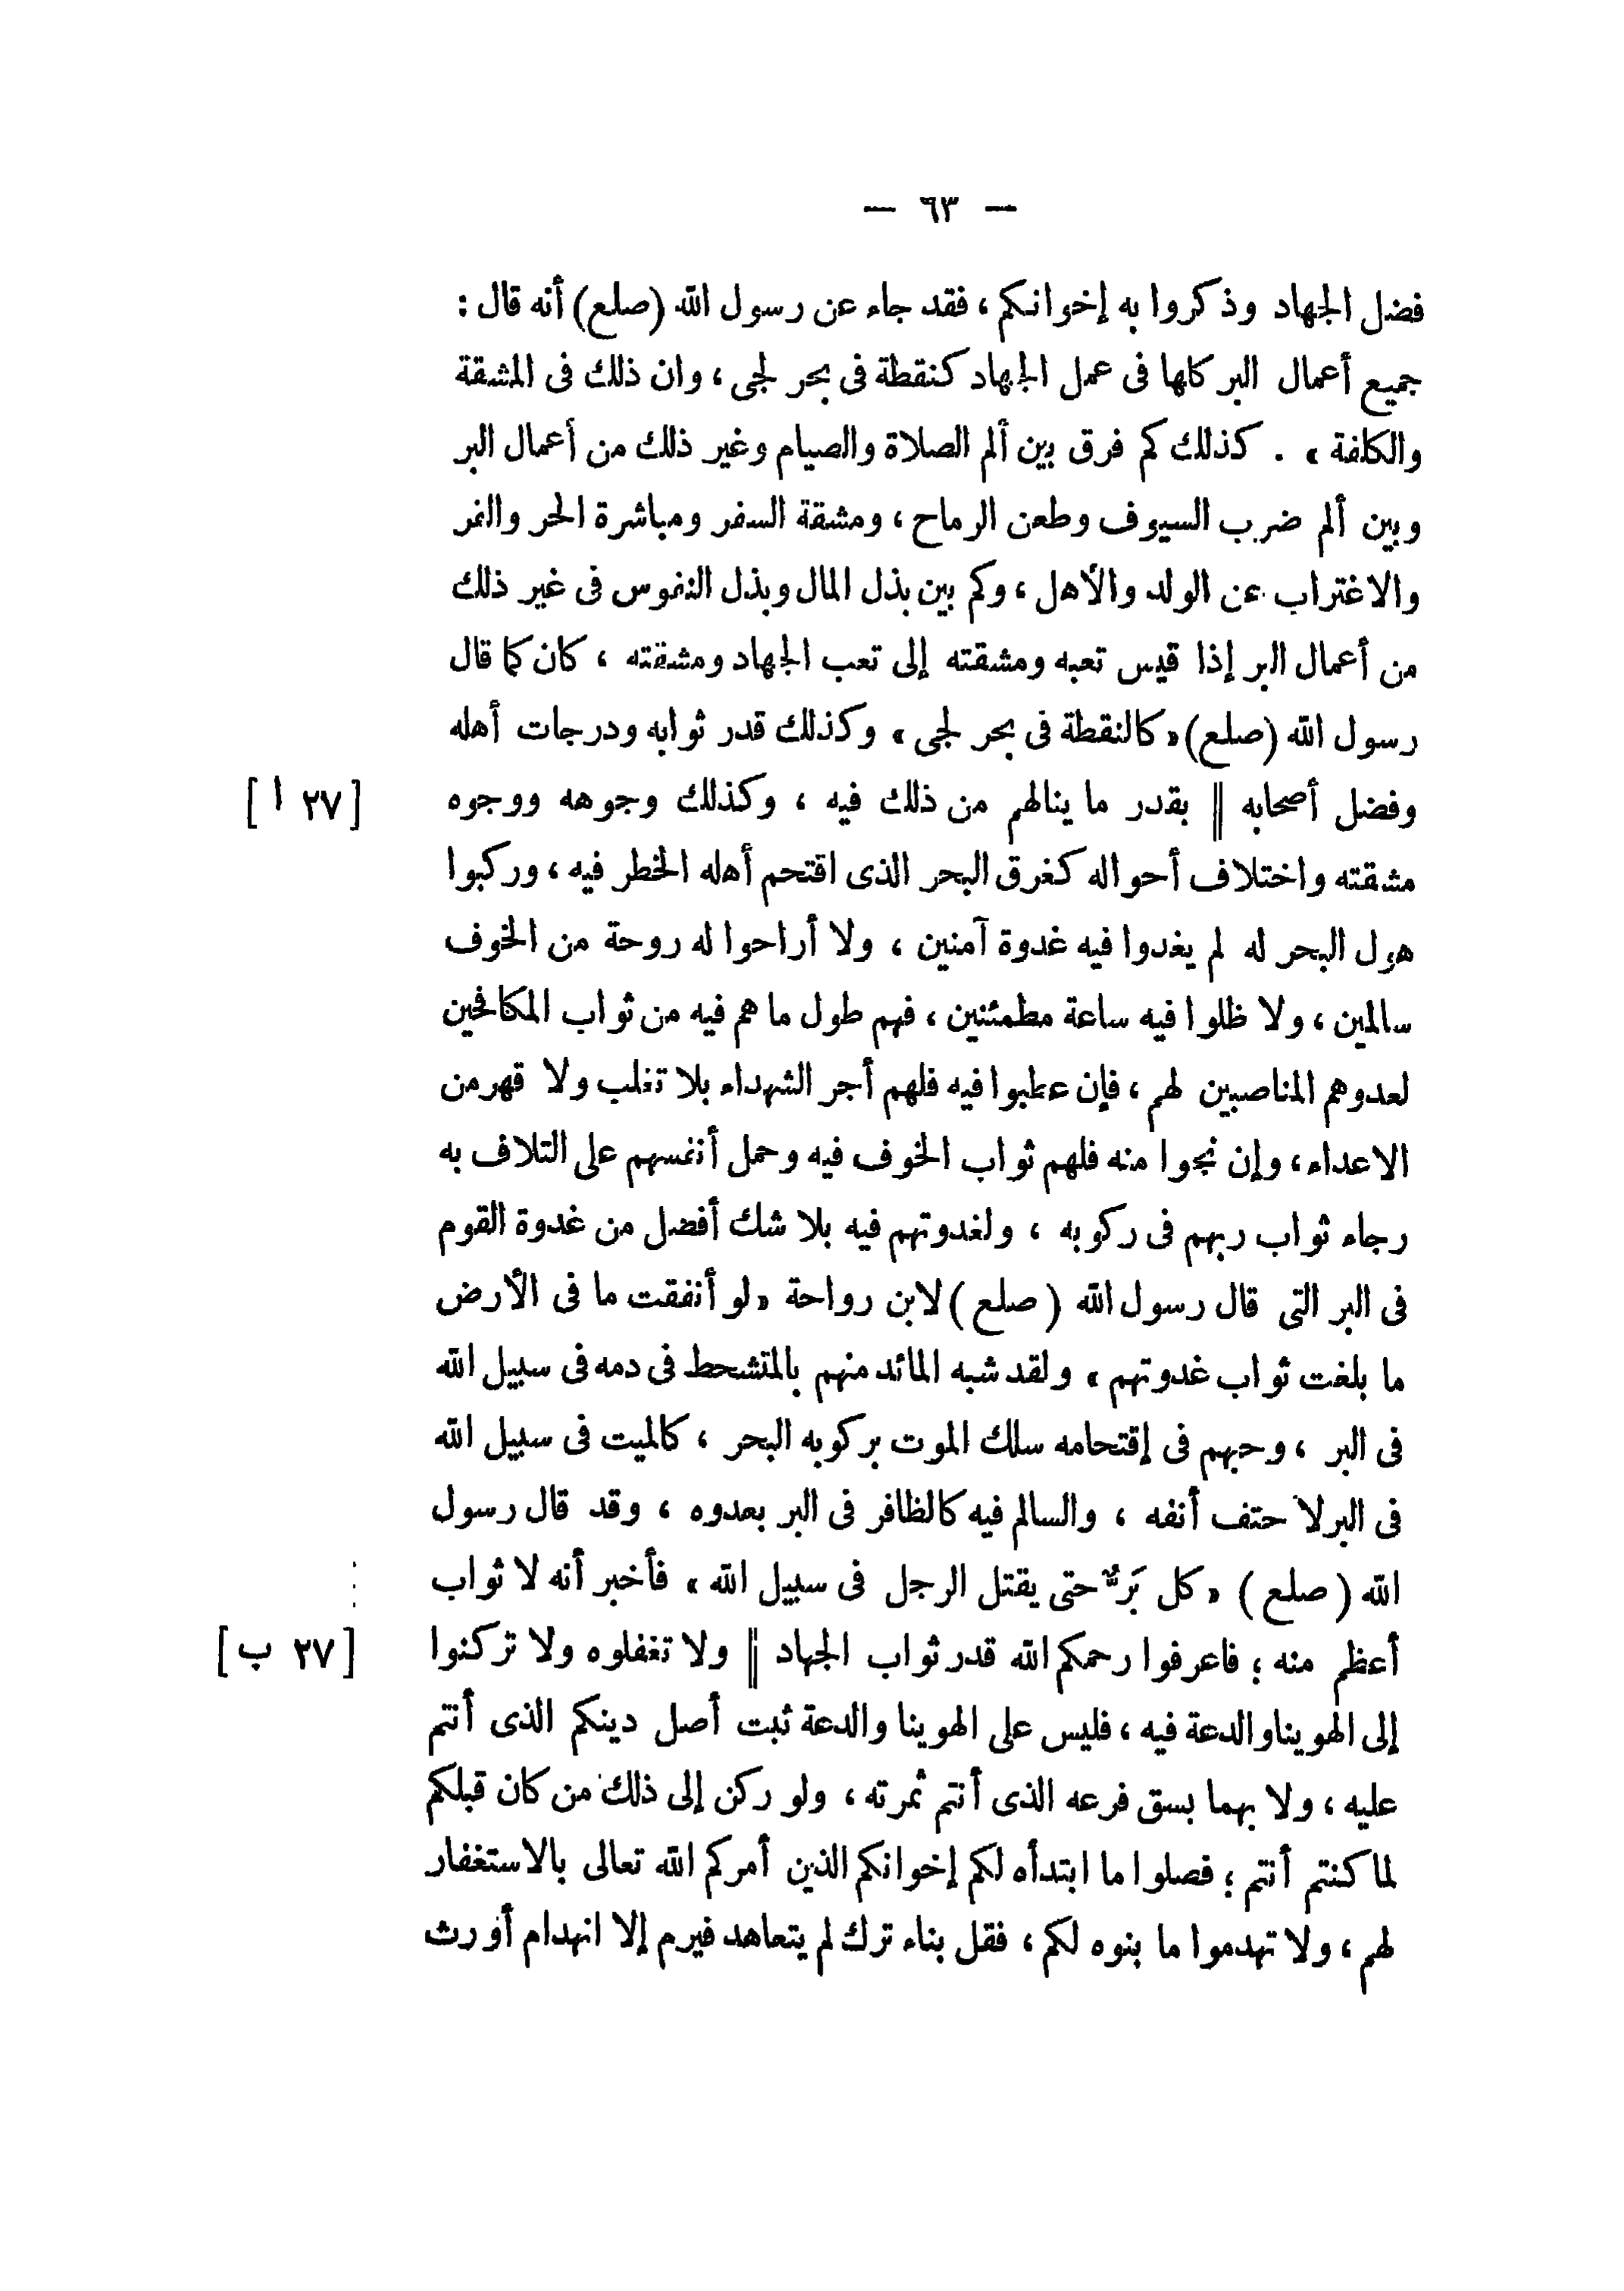 — ٦٣ —
فضل الجهاد وذكروا به إخوانكم ، فقد جاء عن رسول الله (صلع) أنه قال :
جميع أعمال البر كلها فى عمل الجهاد كنقطة فى بحر لجى ، وان ذلك فى المشقة
والكلفة » . كذلك كم فرق بين ألم الصلاة والصيام وغير ذلك من أعمال البر
وبين ألم ضرب السيوف وطعن الرماح ، ومشقة السفر ومباشرة الحر والقر
والاغتراب عن الولد والأهل ، وكم بين بذل المال وبذل النفوس فى غير ذلك
من أعمال البر إذا قيس تعبه ومشقته إلى تعب الجهاد ومشقته ، كان كما قال
رسول الله (صلع) « كالنقطة فى بحر لجى » وكذلك قدر ثوابه ودرجات أهله
وفضل أصحابه || بقدر ما ينالهم من ذلك فيه ، وكذلك وجوهه ووجوه [٢٧ ا]
مشقته واختلاف أحواله كغرق البحر الذى اقتحم أهله الخطر فيه ، وركبوا
هول البحر له لم يغدوا فيه غدوة آمنين ، ولا أراحوا له روحة من الخوف
سالمين ، ولا ظلوا فيه ساعة مطمئنين ، فهم طول ما هم فيه من ثواب المكافحين
لعدوهم المناصبين لهم ، فإن عطبوا فيه فلهم أجر الشهداء بلا تغلب ولا قهر من
الاعداء ، وإن نجوا منه فلهم ثواب الخوف فيه وحمل أنفسهم على التلاف به
رجاء ثواب ربهم فى ركوبه ، ولغدوتهم فيه بلا شك أفضل من غدوة القوم
فى البر التى قال رسول الله ( صلع ) لابن رواحة « لو أنفقت ما فى الأرض
ما بلغت ثواب غدوتهم » ولقد شبه المائد منهم بالمتشحط فى دمه فى سبيل الله
فى البر ، وحبهم فى إقتحامه سلك الموت بركوبه البحر ، كالميت فى سبيل الله
فى البر لا حتف أنفه ، والسالم فيه كالظافر فى البر بعدوه ، وقد قال رسول
الله ( صلع ) « كل بَرٌّ حتى يقتل الرجل فى سبيل الله » فأخبر أنه لا ثواب
أعظم منه ؛ فاعرفوا رحمكم الله قدر ثواب الجهاد || ولا تغفلوه ولا تركنوا [٢٧ ب]
إلى الهوينا والدعة فيه ، فليس على الهوينا والدعة ثبت أصل دينكم الذى أنتم
عليه ، ولا بهما بسق فرعه الذى أنتم ثمرته ، ولو ركن إلى ذلك من كان قبلكم
لما كنتم أنتم ؛ فصلوا ما ابتدأه لكم إخوانكم الذين أمركم الله تعالى بالاستغفار
لهم ، ولا تهدموا ما بنوه لكم ، فقل بناء ترك لم يتعاهد فيرم إلا انهدام أو رث